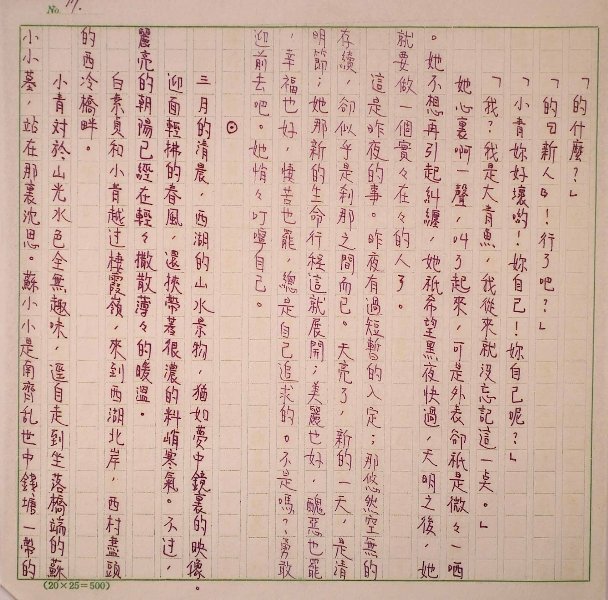 No. 19.
「的什麼？」
「的『新人』！行了吧？」
「小青妳好壞喲！妳自己！妳自己呢？」
「我？我是大青魚，我從來就沒忘記這一点。」
她心裏啊一聲，叫了起來，可是外表卻祇是微々一哂
。她不想再引起糾纏，她祇希望黑夜快過，天明之後，她
就要做一個實々在々的人了。
這是昨夜的事。昨夜有過短暫的入定；那悠然空無的
存續，卻似乎是刹那之間而已。天亮了，新的一天，是清
明節；她那新的生命行程這就展開；美麗也好，醜惡也罷
，幸福也好，悽苦也罷，總是自己追求的。不是嗎？勇敢
迎前去吧。她悄々叮嚀自己。
⊙
三月的清晨，西湖的山水景物，猶如夢中鏡裏的映像。
迎面輕拂的春風，還挾帶著很濃的料峭寒氣。不过，
麗亮的朝陽已經在輕々撒散薄々的暖溫。
白素貞和小青越过棲霞嶺，來到西湖北岸，西村盡頭
的西冷橋畔。
小青对於山光水色全無趣味，逕自走到坐落橋端的蘇
小小墓，站在那裏沈思。蘇小小是南齊乱世中錢塘一帶的
(20×25=500)